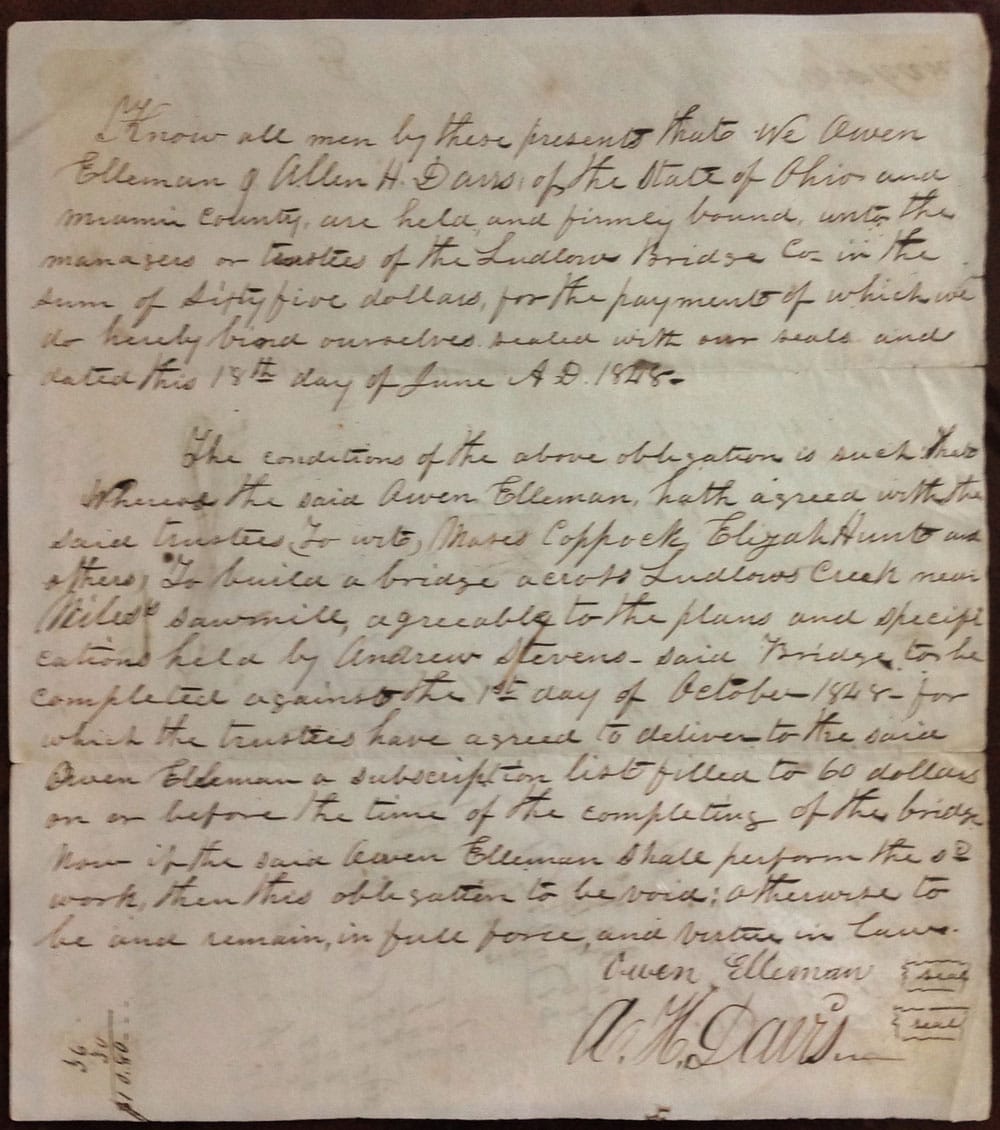 Know all men by these presents that We Owen
Elleman & Allen H. Davis, of the State of Ohio and
Miamie County, are held, and firmley bound, unto the
managers or trustees of the Ludlows Bridge Co= in the
sum of Sixty five dollars, for the payment of which we
do hereby bind ourselves sealed with our seals and
dated this 18th day of June A.D. 1848-
The conditions of the above obligation is such that
Whereas the said Owen Elleman, hath agreed with the
said trustees, To wit, Moses Coppock, Elijah Hunt and
others, To build a bridge across Ludlows Creek near
Miles's sawmill, agreeable to the plans and specifi
cations held by Andrew Stevens - said Bridge to be
completed against the 1st day of October 1848 - for
which the trustees have agreed to deliver to the said
Owen Elleman a subscription list filled to 60 dollars
on or before the time of the completing of the bridge
Now if the said Owen Elleman shall perform the sd
work, then this obligation to be void; otherwise to
be and remain, in full force, and virtue in law.
Owen Elleman seal
A. H. Davis seal
36
30
$10.80